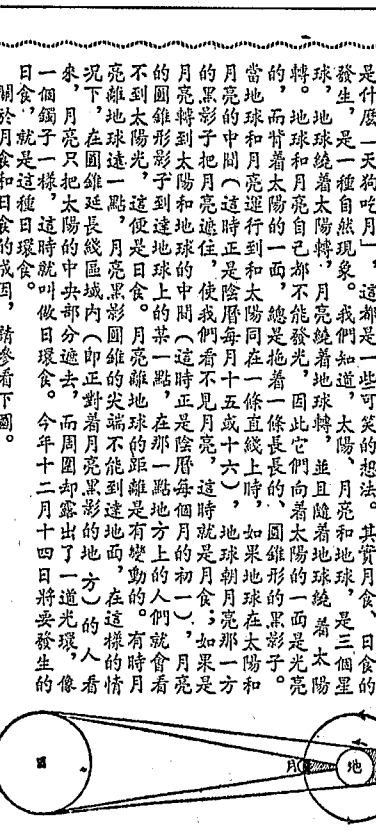 是什麼「天狗吃月」，這都是一些可笑的想法。其實月食、日食的
發生，是一種自然現象。我們知道，太陽、月亮和地球，是三個星
球，地球繞着太陽轉，月亮繞着地球轉，並且隨着地球繞着太陽
轉。地球和月亮自己都不能發光，因此它們向着太陽的一面是光亮
的，而背着太陽的一面，總是拖着一條長長的、圓錐形的黑影子。
當地球和月亮運行到和太陽同在一條直綫上時，如果地球在太陽和
月亮的中間（這時正是陰曆每月十五或十六），地球朝月亮那一方
的黑影子把月亮遮住，使我們看不見月亮，這時就是月食；如果是
月亮轉到太陽和地球的中間（這時正是陰曆每個月的初一），月亮
的圓錐形影子到達地球上的某一點，在那一點地方上的人們就會看
不到太陽光，這便是日食。月亮離地球的距離是有變動的。有時月
亮離地球遠一點，月亮黑影圓錐的尖端不能到達地面，在這樣的情
况下，在圓錐延長綫區域內（即正對着月亮黑影的地方）的人看
來，月亮只把太陽的中央部分遮去，而周圍却露出了一道光環，像
一個鐲子一樣，這時就叫做日環食。今年十二月十四日將要發生的
日食，就是這種日環食。
關於月食和日食的成因，請參看下圖。
日
月
地